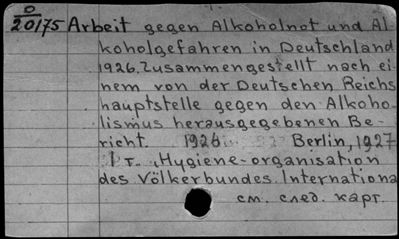 O
20/75 Arbeit gegen Alkoholnot und Al
koholgefahren in Deutschland
1926. Zusammengestellt nach ei-
nem von der Deutschen Reichs
hauptstelle gegen den Alkoho-
lismus herausgegebenen Be-
richt. 1926 Berlin, 1927
1 т. „Hygiene-organisation
des Völkerbundes. Internationa
см. след. карт.